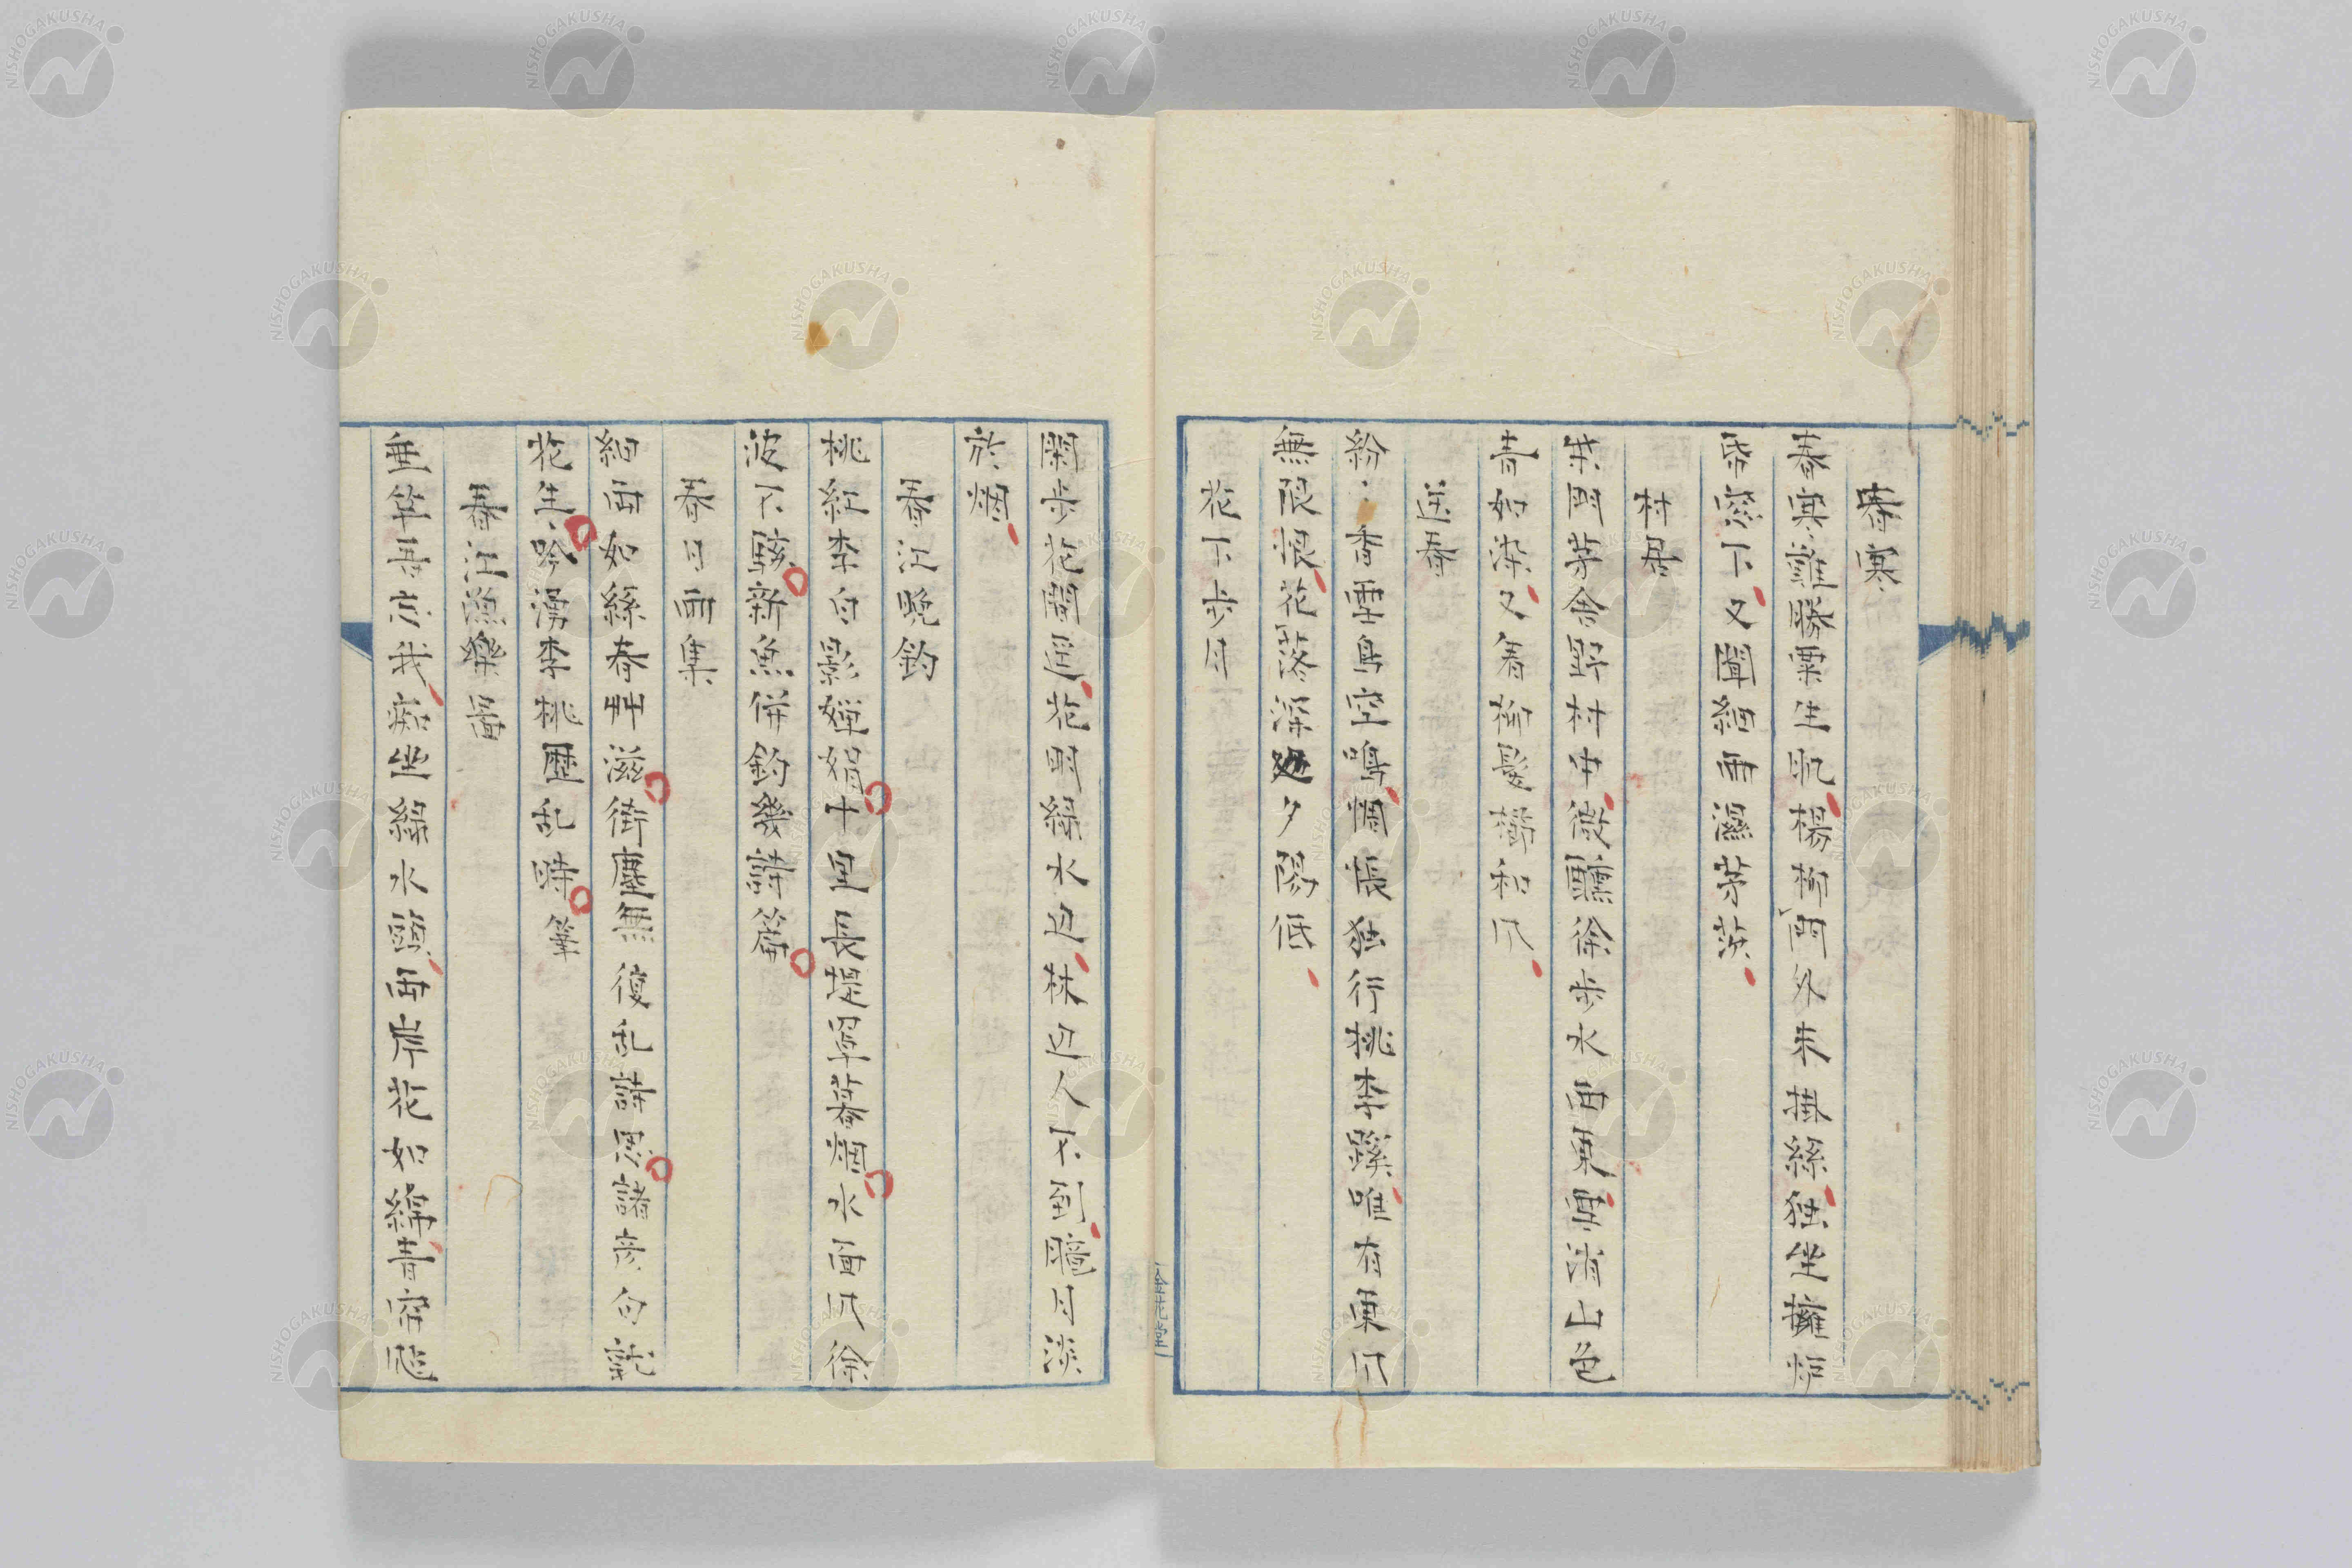 春寒
春寒難勝粟生肌楊柳門外未掛絲独坐擁炉
柴窓下又聞細雨湿茅茨
村居
柴門茅舎野村中微醺徐歩水西東軍清山色
青如染又看柳髪櫛和风
送春
紛〻香雪鳥空鳴惆悵独行桃李蹊唯有東风
無限恨花落深処夕陽低
花下歩月
閑歩花間逕花明緑水边林边人不到朧月淡
於烟
春江晩釣
桃紅李白影嬋娟十里長堤罩暮烟水面风徐
波不驕新魚併釣幾詩篇
春日雨集
細雨如絲春艸滋街塵無復乱詩思諸彦句就
花生吟湧李桃歴乱時筆
春江漁樂図
垂竿吾忘我痴坐緑水頭両岸花如繡青帘颭